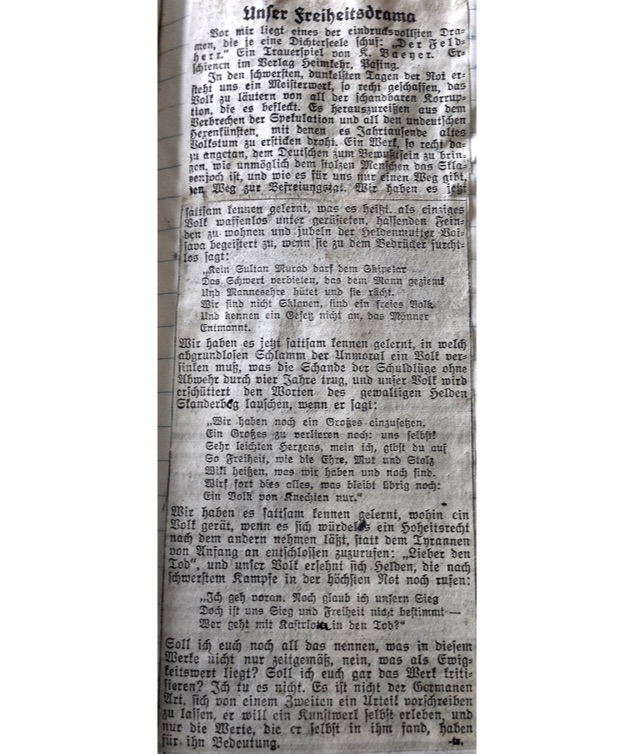 Unser Freiheitsdrama
Vor mir liegt eines der eindrucksvollsten Dra-
men, die je eine Dichterseele schuf: „Der Feld-
herr." Ein Trauerspiel von K. Baeyer. Er-
schienen im Verlag Heimkehr, Pasing.
In den schwersten, dunkelsten Tagen der Not er-
steht uns ein Meisterwerk, so recht geschaffen, das
Volk zu läutern von all der schandbaren Korrup-
tion, die es befleckt. Es herauszureißen aus dem
Verbrechen der Spekulation und all den undeutschen
Hexenkünsten, mit denen es Jahrtausende altes
Volkstum zu ersticken droht. Ein Werk, so recht da-
zu angetan, dem Deutschen zum Bewußtsein zu brin-
gen, wie unmöglich dem stolzen Menschen das Skla-
venjoch ist, und wie es für uns nur einen Weg gibt,
den Weg zur Befreiungstat. Wir haben es jetzt
sattsam kennen gelernt, was es heißt, als einziges
Volk waffenlos unter gerüsteten, hassenden Fein-
den zu wohnen und jubeln der Heldenmutter Voi-
sava begeistert zu, wenn sie zu dem Bedrücker furcht-
los sagt:
„Kein Sultan Murad darf dem Skipetar
Das Schwert verbieten, das dem Mann geziemt
Und Mannesehre hütet und sie rächt.
Wir sind nicht Sklaven, sind ein freies Volk
Und kennen ein Gesetz nicht an, das Männer
Entmannt.
Wir haben es jetzt sattsam kennen gelernt, in welch
abgrundlosen Schlamm der Unmoral ein Volk ver-
sinken muß, was die Schande der Schuldlüge ohne
Abwehr durch vier Jahre trug, und unser Volk wird
erschüttert den Worten des gewaltigen Helden
Skanderbeg lauschen, wenn er sagt:
„Wir haben noch ein Großes einzusetzen,
Ein Großes zu verlieren noch: uns selbst!
Sehr leichten Herzens, mein ich, gibst du auf
So Freiheit, wie die Ehre, Mut und Stolz
Will heißen, was wir haben und noch sind.
Wirf fort dies alles, was bleibt übrig noch:
Ein Volk von Knechten nur."
Wir haben es sattsam kennen gelernt, wohin ein
Volk gerät, wenn es sich würdelos ein Hoheitsrecht
nach dem andern nehmen läßt, statt dem Tyrannen
von Anfang an entschlossen zuzurufen: „Lieber den
Tod", und unser Volk ersehnt sich Helden, die nach
schwerstem Kampfe in der höchsten Not noch rufen:
„Ich geh voran. Noch glaub ich unsern Sieg
Doch ist uns Sieg und Freiheit nicht bestimmt —
Wer geht mit Kastriota in den Tod?"
Soll ich euch noch all das nennen, was in diesem
Werke nicht nur zeitgemäß, nein, was als Ewig-
keitswert liegt? Soll ich euch gar das Werk kriti-
sieren? Ich tu es nicht. Es ist nicht der Germanen
Art, sich von einem Zweiten ein Urteil vorschreiben
zu lassen, er will ein Kunstwerk selbst erleben, und
nur die Werte, die er selbst in ihm fand, haben
für ihn Bedeutung.